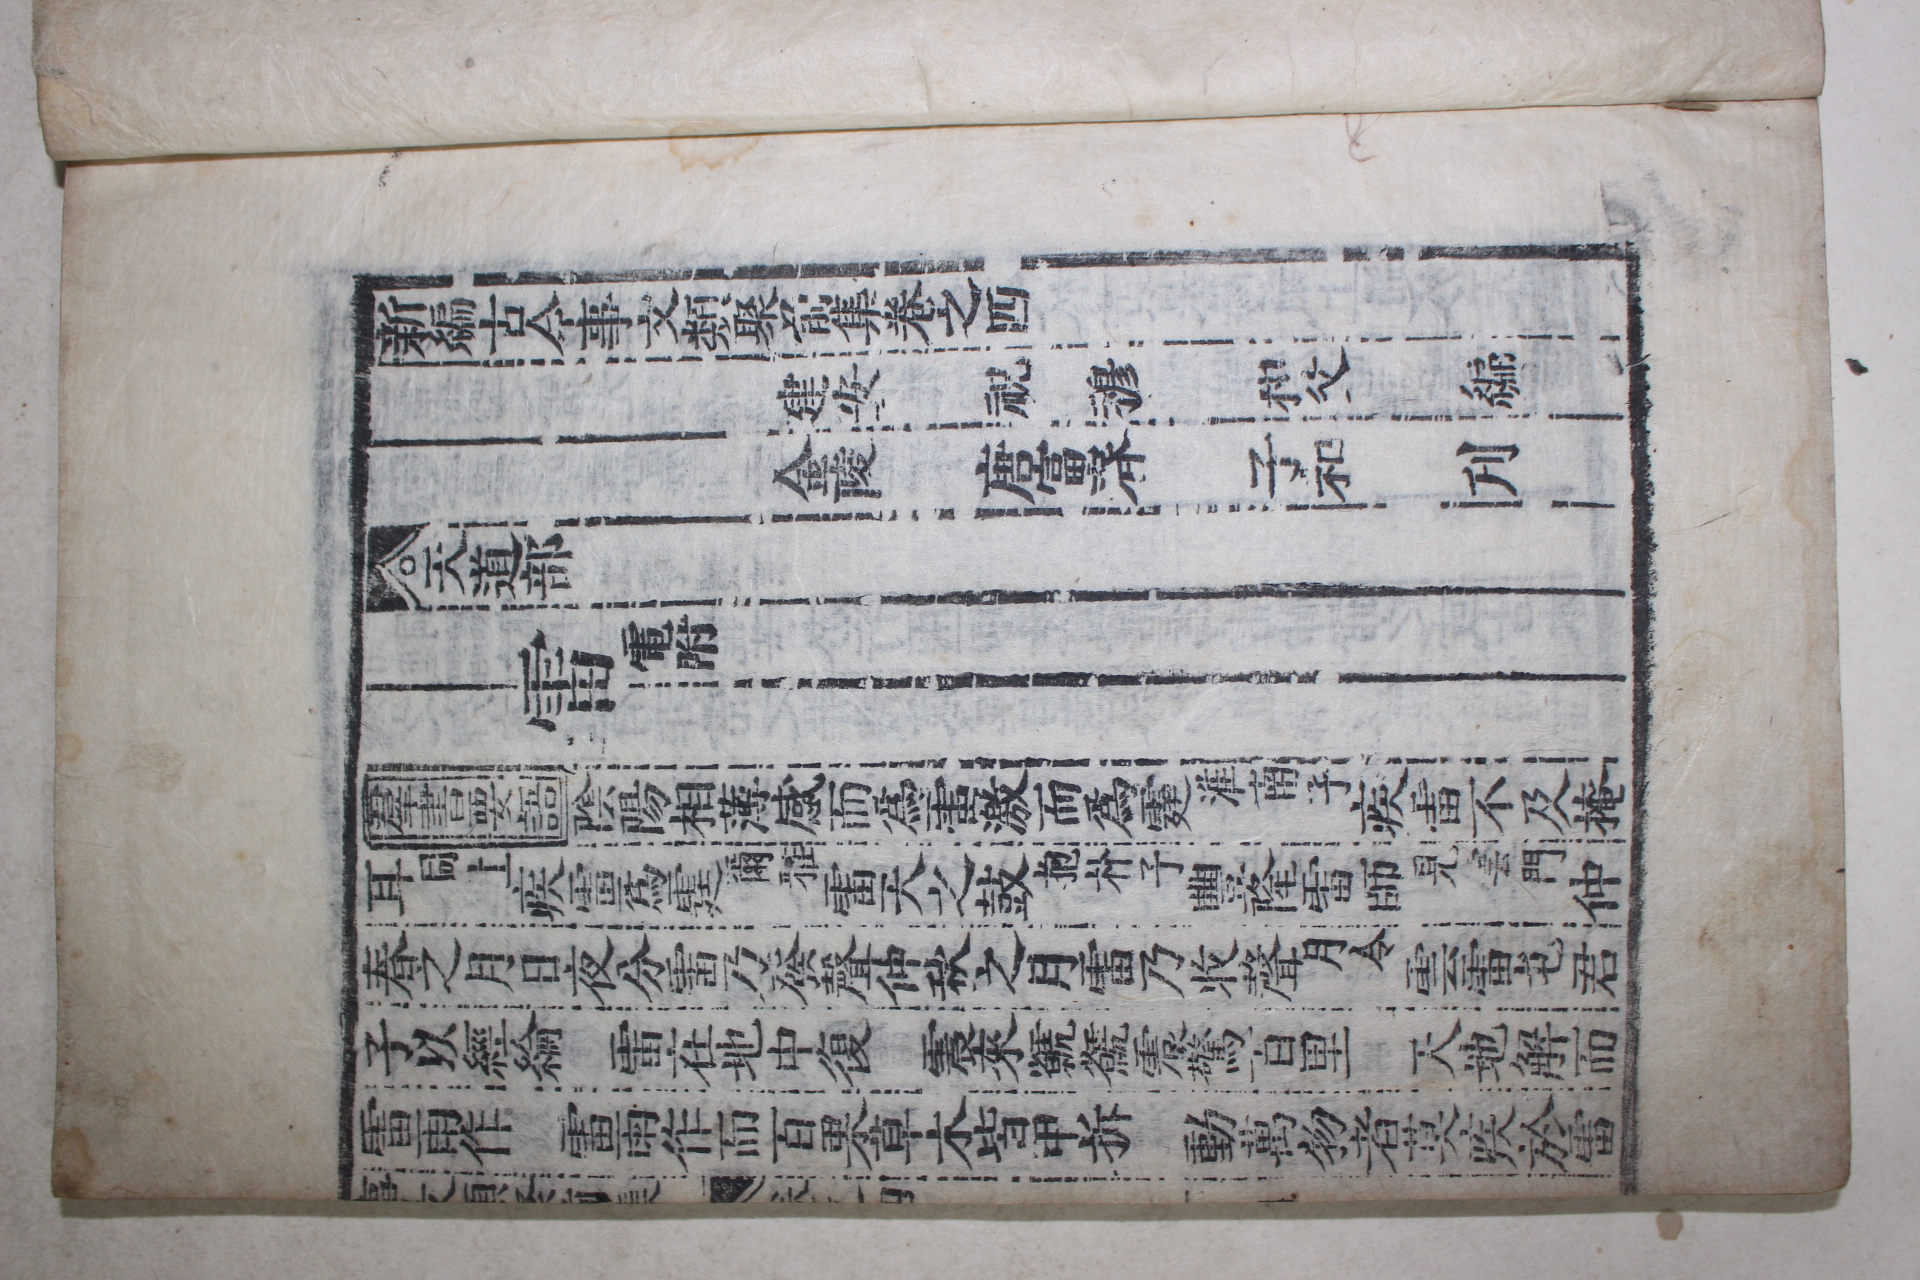 新編古今事文類聚前集卷之四
建安 祝 穆 和父 編
金陵 唐富春 子和 刊
天道部
雷 電附
群書要語 陰陽相薄感而為雷激而為霆 淮南子 疾雷不及掩
耳 同上 疾雷為霆 爾雅 雷天之鼓 抱朴子 豐隆雷師 見雲門 仲
春之月日夜分雷乃發聲仲秋之月雷乃收聲 月令 雲雷屯君
子以經綸 雷在地中復 震來虩虩震驚百里 天地解而
雷雨作 雷雨作而百果草木皆甲拆 動萬物者莫疾於雷